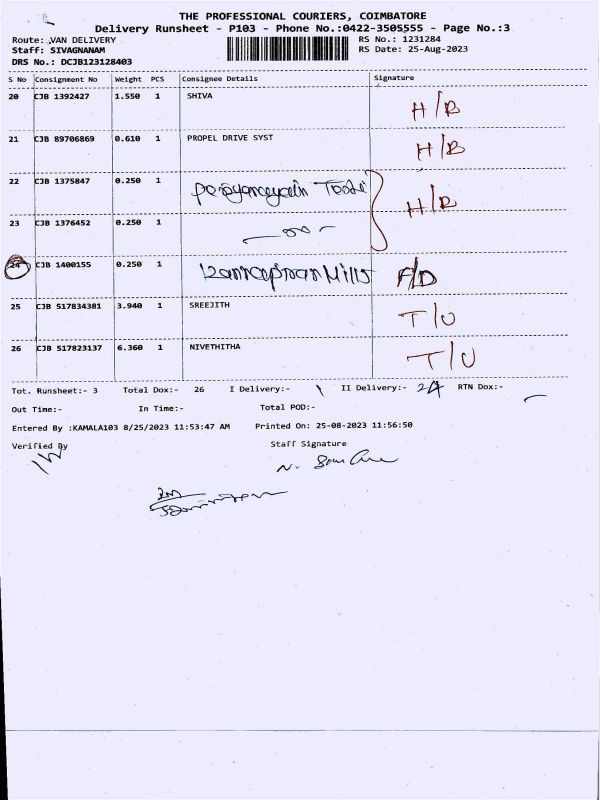 THE PROFESSIONAL COURIERS, COIMBATORE
Delivery Runsheet - P103 - Phone No.:0422-3505555 - Page No.:3
Route: VAN DELIVERY RS No.: 1231284
Staff: SIVAGNANAM RS Date: 25-Aug-2023
DRS No.: DCJB123128403
S No Consignment No Weight PCS Consignee Details Signature
20 CJB 1392427 1.550 1 SHIVA H/B
21 CJB 89706869 0.610 1 PROPEL DRIVE SYST H/B
22 CJB 1375847 0.250 1 H/B
23 CJB 1376452 0.250 1
24 CJB 1400155 0.250 1 F/D
25 CJB 517834381 3.940 1 SREEJITH T/U
26 CJB 517823137 6.360 1 NIVETHITHA T/U
Tot. Runsheet:- 3 Total Dox:- 26 I Delivery:- \ II Delivery:- RTN Dox:-
Out Time:- In Time:- Total POD:-
Entered By :KAMALA103 8/25/2023 11:53:47 AM Printed On: 25-08-2023 11:56:50
Verified By Staff Signature